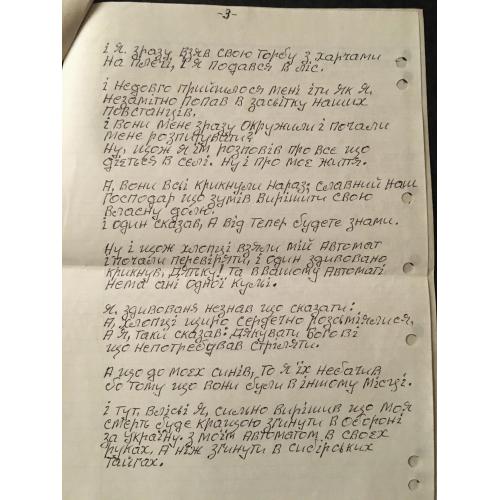 -3-
і я. зразу взяв свою торбу з харчами
на плечі, і я подався в ліс.
і недовго прийшлося мені іти як я,
незамітно попав в засітку наших
повстанців.
і вони мене зразу окружили і почали
мене розпитувати?
Ну, щож я їм розповів про все що
діється в селі. Ну і про моє життя.
А, вони всі крикнули нараз; славний наш
господар що зумів вирішити свою
власну долю.
і один сказав, А від тепер будете знами.
Ну і щож хлопці взяли мій автомат
і почали перевіряти, і один здивовано
крикнув, дядьку! Та в вашому автоматі
нема ані одної кулі.
Я. здивованя незнав що сказати:
А, хлопці щиро сердечно розсміялися,
А я, такй сказав: Дякувати Богові
що непотребував стріляти.
А що до моєх синів, то я їх небачив
бо тому що вони були в іншому місці.
і тут, влісі я, сильно вирішив що моя
смерть буде кращою згинути в обороні
за Україну. з моїм автоматом в своєх
руках, А ніж згинути в сибірських
тайгах.